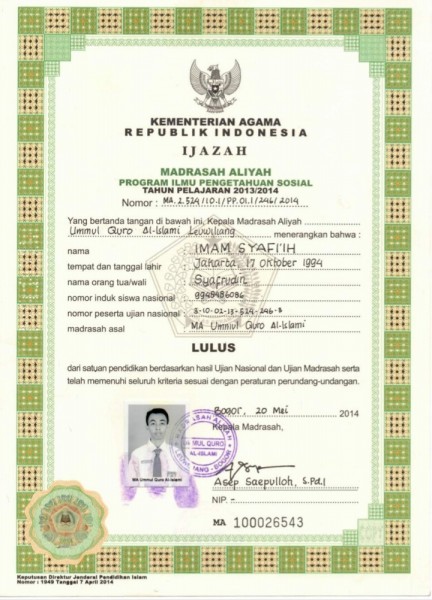 KEMENTERIAN AGAMA
REPUBLIK INDONESIA
IJAZAH
MADRASAH ALIYAH
PROGRAM ILMU PENGETAHUAN SOSIAL
TAHUN PELAJARAN 2013/2014
Nomor : MA.2.524/10.1/PP.01.1/246/2014
Yang bertanda tangan di bawah ini, Kepala Madrasah Aliyah
Ummul Quro Al-Islami Leuwiliang menerangkan bahwa :
nama IMAM SYAFI'IH
tempat dan tanggal lahir Jakarta, 17 Oktober 1994
nama orang tua/wali Syafrudin
nomor induk siswa nasional
nomor peserta ujian nasional 3-10-02-13-524-246-3
madrasah asal MA Ummul Quro Al-Islami
LULUS
dari satuan pendidikan berdasarkan hasil Ujian Nasional dan Ujian Madrasah serta
telah memenuhi seluruh kriteria sesuai dengan peraturan perundang-undangan.
Bogor, 20 Mei 2014
Kepala Madrasah,
UMMUL QURO
AL-ISLAMI
MA Ummul Quro Al-Islami
Asep Saepulloh, S.Pd.I
NIP. -
MA 100026543
Keputusan Direktur Jenderal Pendidikan Islam
Nomor : 1949 Tanggal 7 April 2014